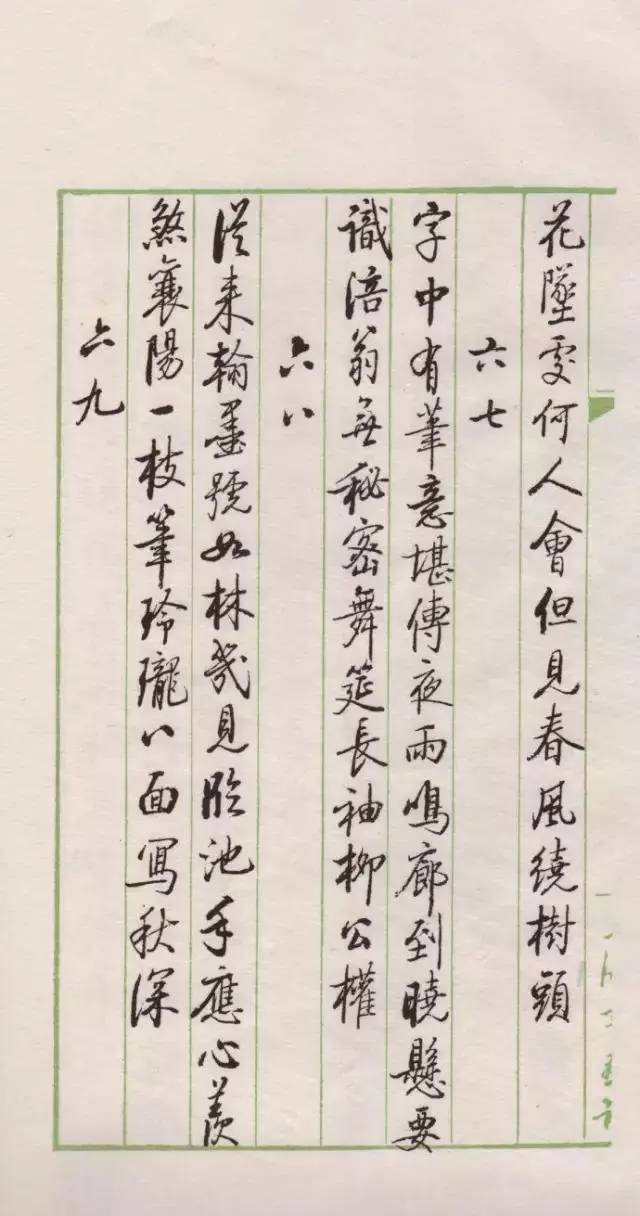 花墜處何人會但見春風繞樹頭
六七
字中有筆意堪傳夜雨鳴廊到曉懸要
識涪翁無秘密舞筵長袖柳公權
六八
從來翰墨號如林幾見臨池手應心羨
煞襄陽一枝筆玲瓏八面寫秋深
六九